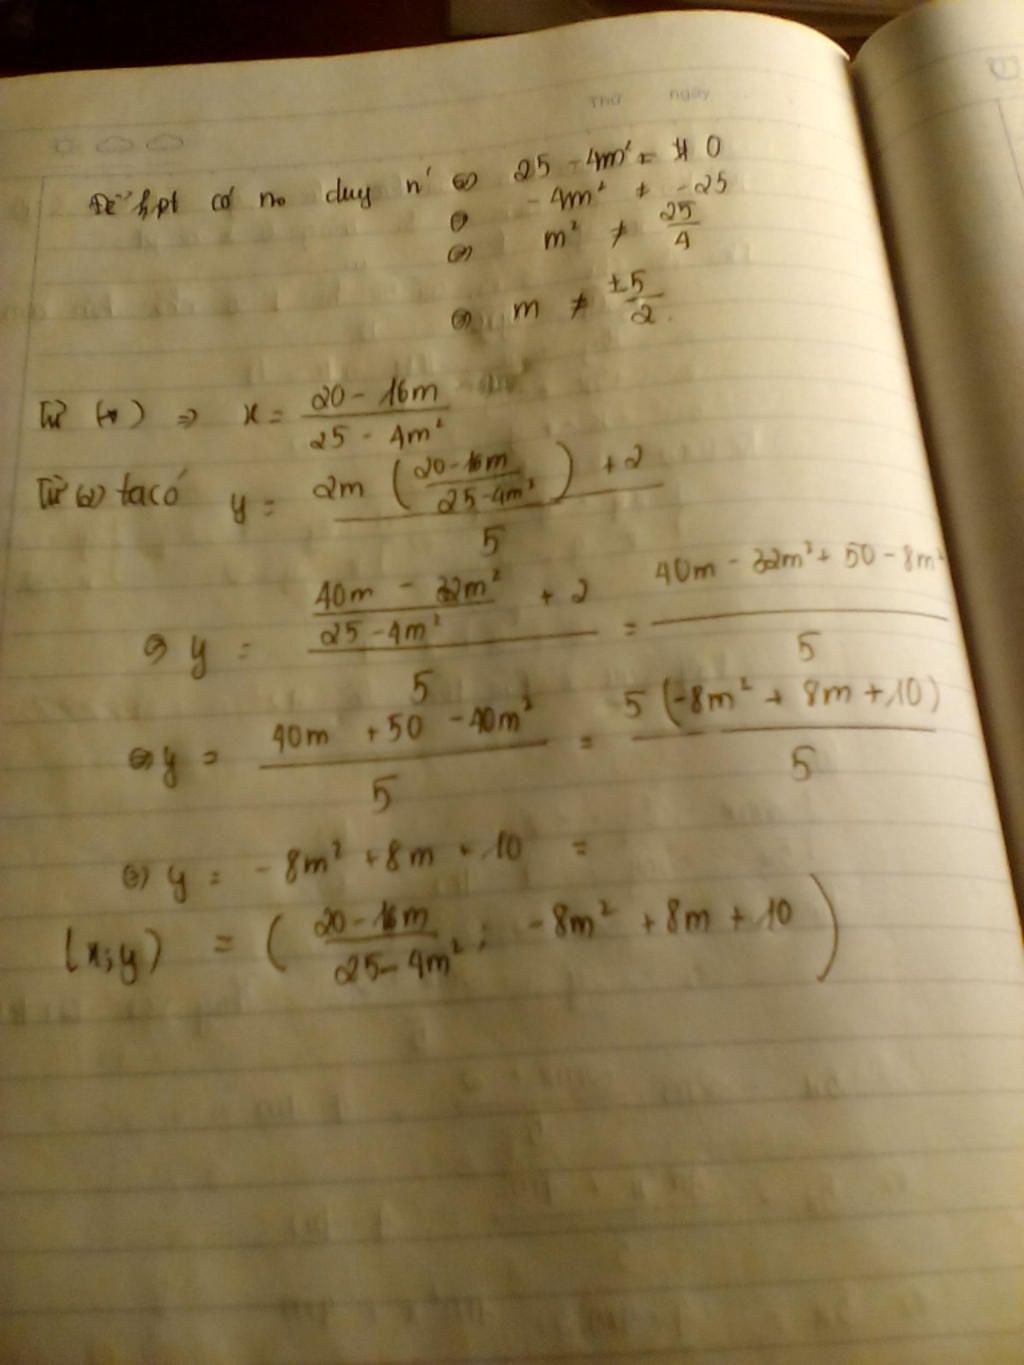 Thứ ngày
Để hpt có no duy n' ⇔ 25 - 4m² = ≠ 0
⇔ - 4m² ≠ -25
⇔ m² ≠ 25/4
⇔ m ≠ ±5/2.
Từ (*) ⇒ x = (20 - 16m)/(25 - 4m²)
Từ (2) ta có y = (2m ((20-16m)/(25-4m²)) + 2)/5
⇔ y = ((40m - 32m²)/(25 - 4m²) + 2)/5 = (40m - 32m² + 50 - 8m²)/5
⇔ y = (40m + 50 - 40m²)/5 = 5(-8m² + 8m + 10)/5
⇔ y = - 8m² + 8m + 10 =
(x;y) = ((20 - 16m)/(25 - 4m²) ; - 8m² + 8m + 10)